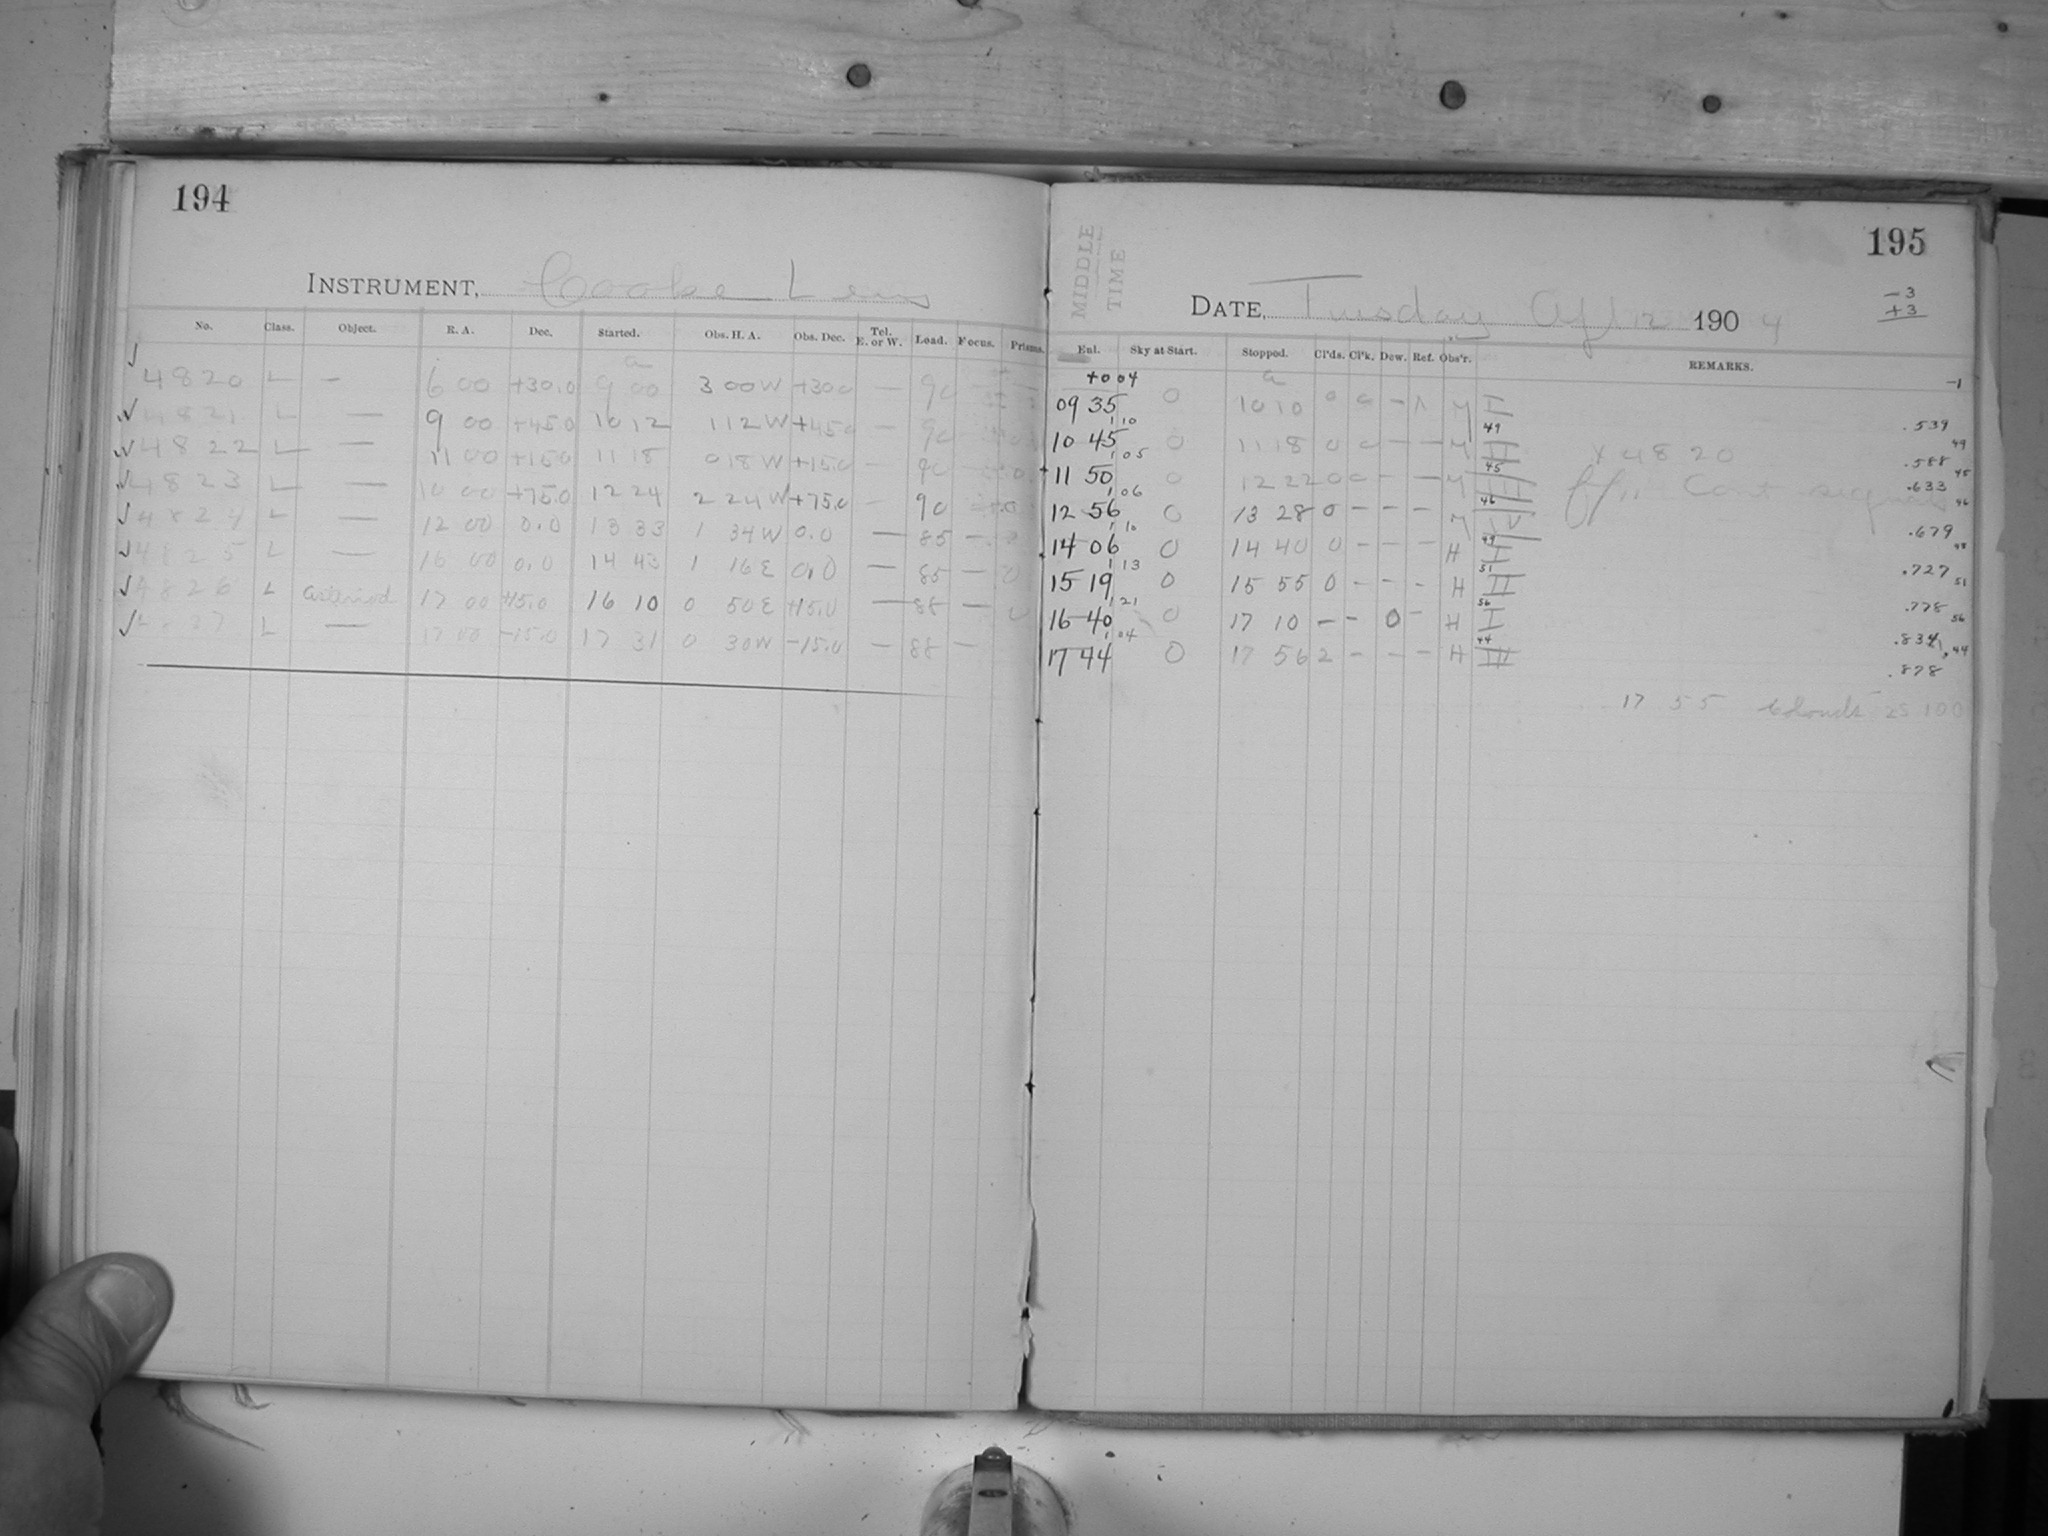 194
INSTRUMENT, Cooke Lens
No. Class. Object. R. A. Dec. Started. Obs. H. A. Obs. Dec. Tel. E. or W. Load. Focus. Prisms.
a
4820 L — 6 00 +30.0 9 00 3 00 W +30.0 — 90
4821 L — 9 00 +45.0 10 12 1 12 W +45.0 — 90
4822 L — 11 00 +15.0 11 18 0 18 W +15.0 — 90
4823 L — 10 00 +75.0 12 24 2 24 W +75.0 — 90
4824 L — 12 00 0.0 13 33 1 34 W 0.0 — 85 —
4825 L — 16 00 0.0 14 43 1 16 E 0.0 — 85 — 0
4826 L asteriod 17 00 +15.0 16 10 0 50 E +15.0 — 88 — 0
L — 17 00 -15.0 17 31 0 30 W -15.0 — 88 —
195
MIDDLE
TIME
DATE, Tuesday Apl 12 1904
-3
+3
Enl. Sky at Start. Stopped. Cl'ds. Cl'k. Dew. Ref. Obs'r. REMARKS.
+0 04 a -1
09 35 0 10 10 0 0 — M I .539
1 10 49 49
10 45 0 11 18 0 0 — — M II x 4820 .588
1 05 45 45
11 50 0 12 22 0 0 — — M III .633
1 06 46 46
12 56 0 13 28 0 — — — M IV .679
1 10 49 48
14 06 0 14 40 0 — — — H I .727
1 13 51 51
15 19 0 15 55 0 — — — H II .778
1 21 56 56
16 40 0 17 10 — — 0 — H I .834
1 04 44 44
17 44 0 17 56 2 — — — H III .878
17 55 Clouds 25 100